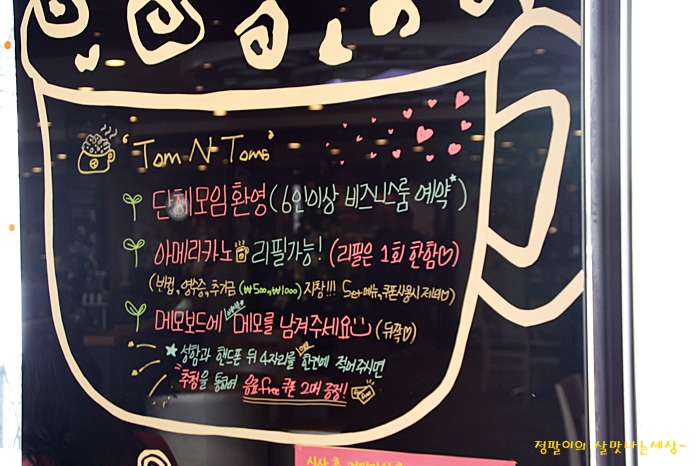 'Tom N Toms'
단체모임 환영 (6인이상 비즈니스룸 예약*)
아메리카노 리필가능! (리필은 1회 한함♡)
(빈컵, 영수증, 추가금 (₩500,₩1000) 지참!!! Set메뉴, 쿠폰사용시 제외♡)
메모보드에 메모를 남겨주세요 (뒤쪽♡)
★ 성함과 핸드폰 뒤 4자리를 한켠에 적어주시면
추첨을 통하여 음료free 쿠폰 2매 증정!
정팔이의 살맛나는세상~